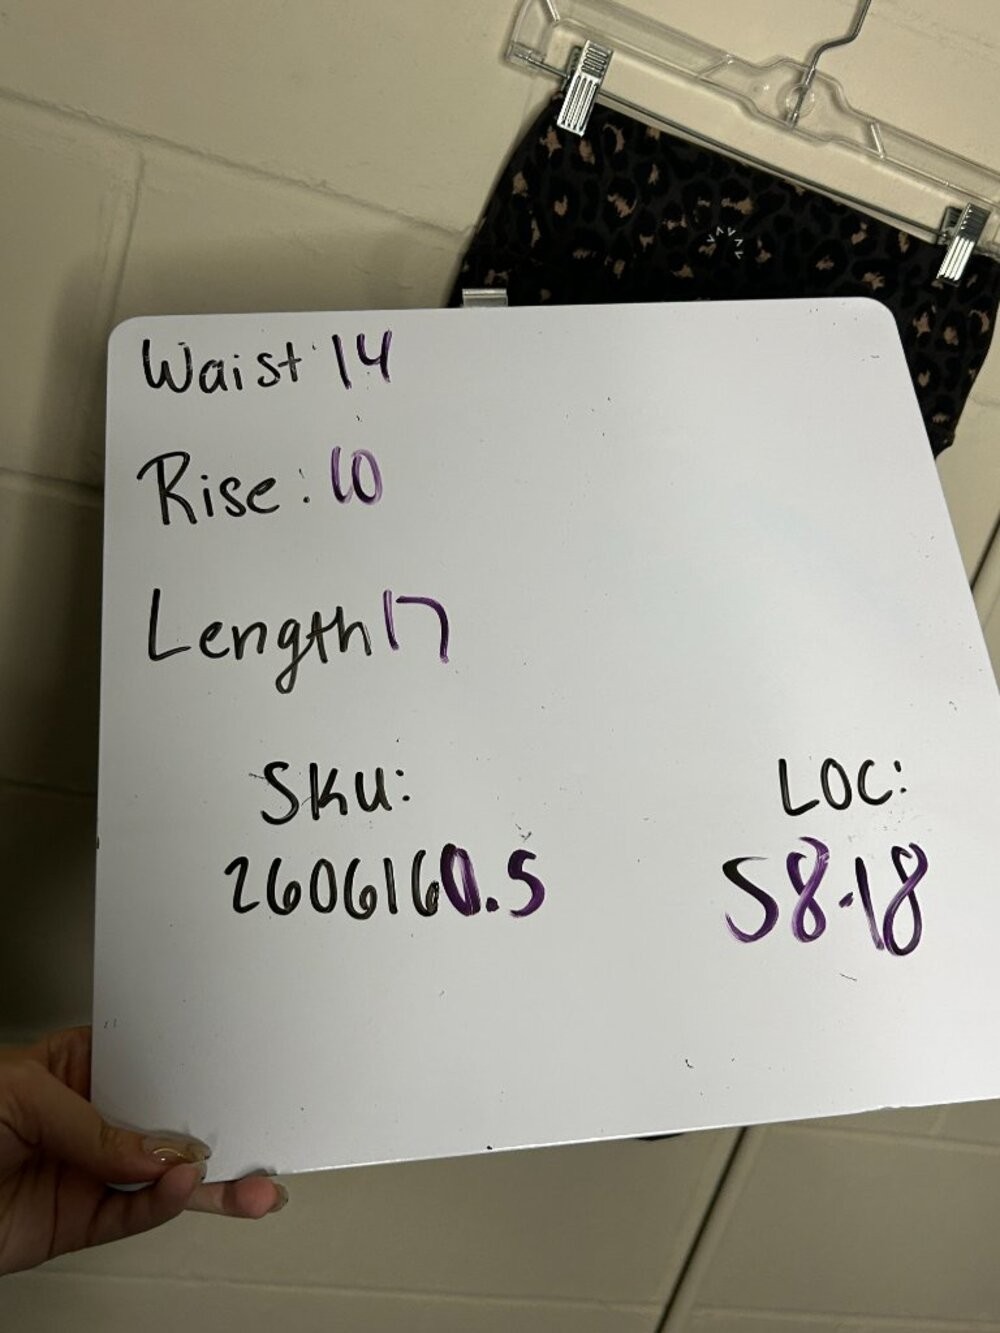 Waist 14
Rise: 10
Length 17
SKU:
2606160.5
LOC:
S8.18